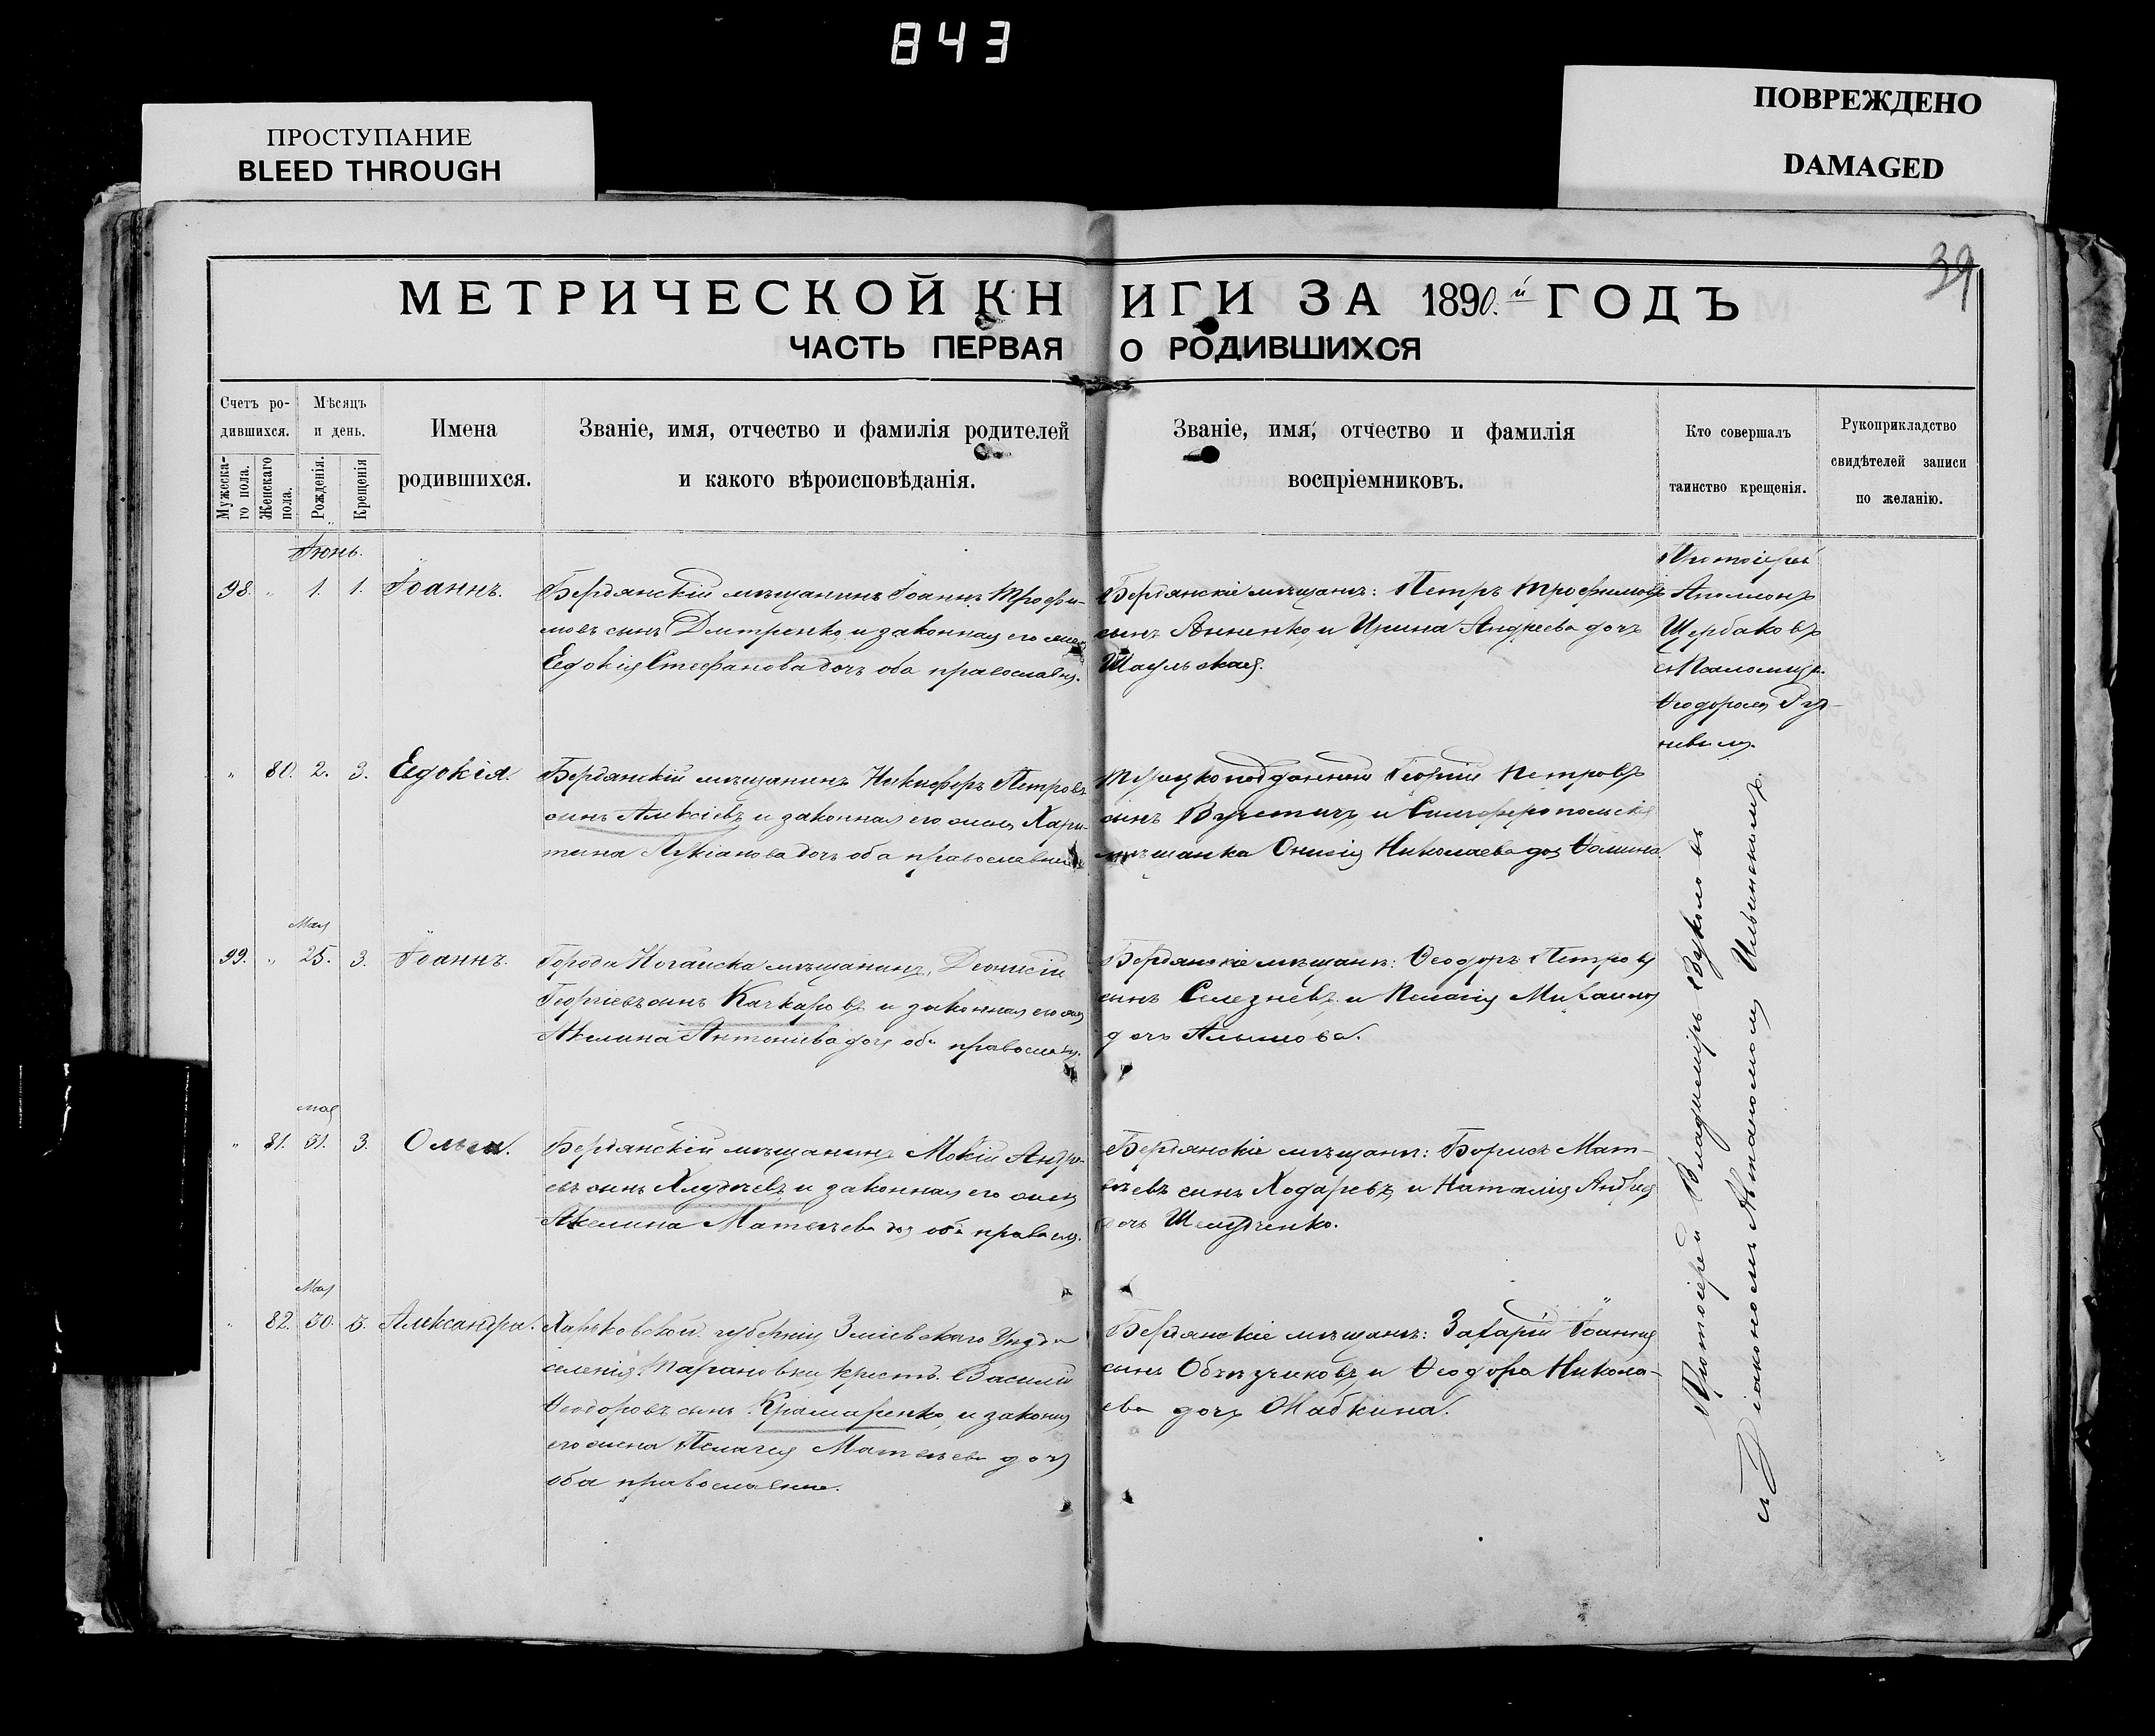 843
ПРОСТУПАНИЕ
BLEED THROUGH
ПОВРЕЖДЕНО
DAMAGED
39
МЕТРИЧЕСКОЙ КНИГИ ЗА 1890.й ГОДЪ
ЧАСТЬ ПЕРВАЯ О РОДИВШИХСЯ
Счетъ ро-
дившихся.
Мужеска-
го пола.
Женскаго
пола.
Мѣсяцъ
и день.
Рожденія.
Крещенія
Имена
родившихся.
Званіе, имя, отчество и фамилія родителей
и какого вѣроисповѣданія.
Званіе, имя, отчество и фамилія
воспріемниковъ.
Кто совершалъ
таинство крещенія.
Рукоприкладство
свидѣтелей записи
по желанію.
Іюнь.
98. " 1. 1. Іоаннъ.
Бердянскій мѣщанинъ Іоаннъ Трофи-
мовъ сынъ Дмтренко и законная его жена
Евдокія Стефанова дочь оба православн.
Бердянскіе мѣщане: Петръ Трофимовъ
сынъ Анненко, и Ирина Андреева дочь
Протоіерей
Аполлонъ
Щербаковъ
съ Псаломщ.
Ѳеодоромъ
" 80. 2. 3. Евдокія.
Бердянскій мѣщанинъ Никифоръ Петровъ
сынъ Алексіевъ и законная его жена Хари-
тина Лукіанова дочь оба православные
Турецкоподданный Георгій Петровъ
сынъ и Симферопольская
мѣщанка Онисія Николаева доч Ѳомина
Мая
99. " 25. 3. Іоаннъ.
Города Ногайска мѣщанинъ, Діонисій
Георгіевъ сынъ Качкаровъ и законная его жена
Акелина Антоніева дочь оба православн.
Бердянскіе мѣщане: Ѳеодоръ Петровъ
сынъ Селезневъ и Пелагія Михаилов
дочь Алымова.
мая
" 81. 31. 3. Ольга.
Бердянскій мѣщанинъ Мокій Андре-
евъ сынъ Хлудѣевъ и законная его жена
Акелина Матѳѣева доч оба правосл.
Бердянскіе мѣщане: Борисъ Мат-
вѣевъ сынъ Ходаревъ и Наталія Андрея
дочь Шелудченко.
Мая
" 82. 30. 5. Александра.
Харьковской губерніи Зміевскаго Уѣзда
селенія Тарановки, крест. Василій
Ѳеодоровъ сынъ Крамаренко, и законная
его жена Пелагея Матѳѣева доч
оба православные.
Бердянскіе мѣщане: Захарій Іоаннов
сынъ Объѣзчиковъ, и Ѳеодора Никола-
ева дочь Жабкина.
Протоіерей Владиміръ Вуколовъ
съ Діакономъ Автономомъ Ильинскимъ.